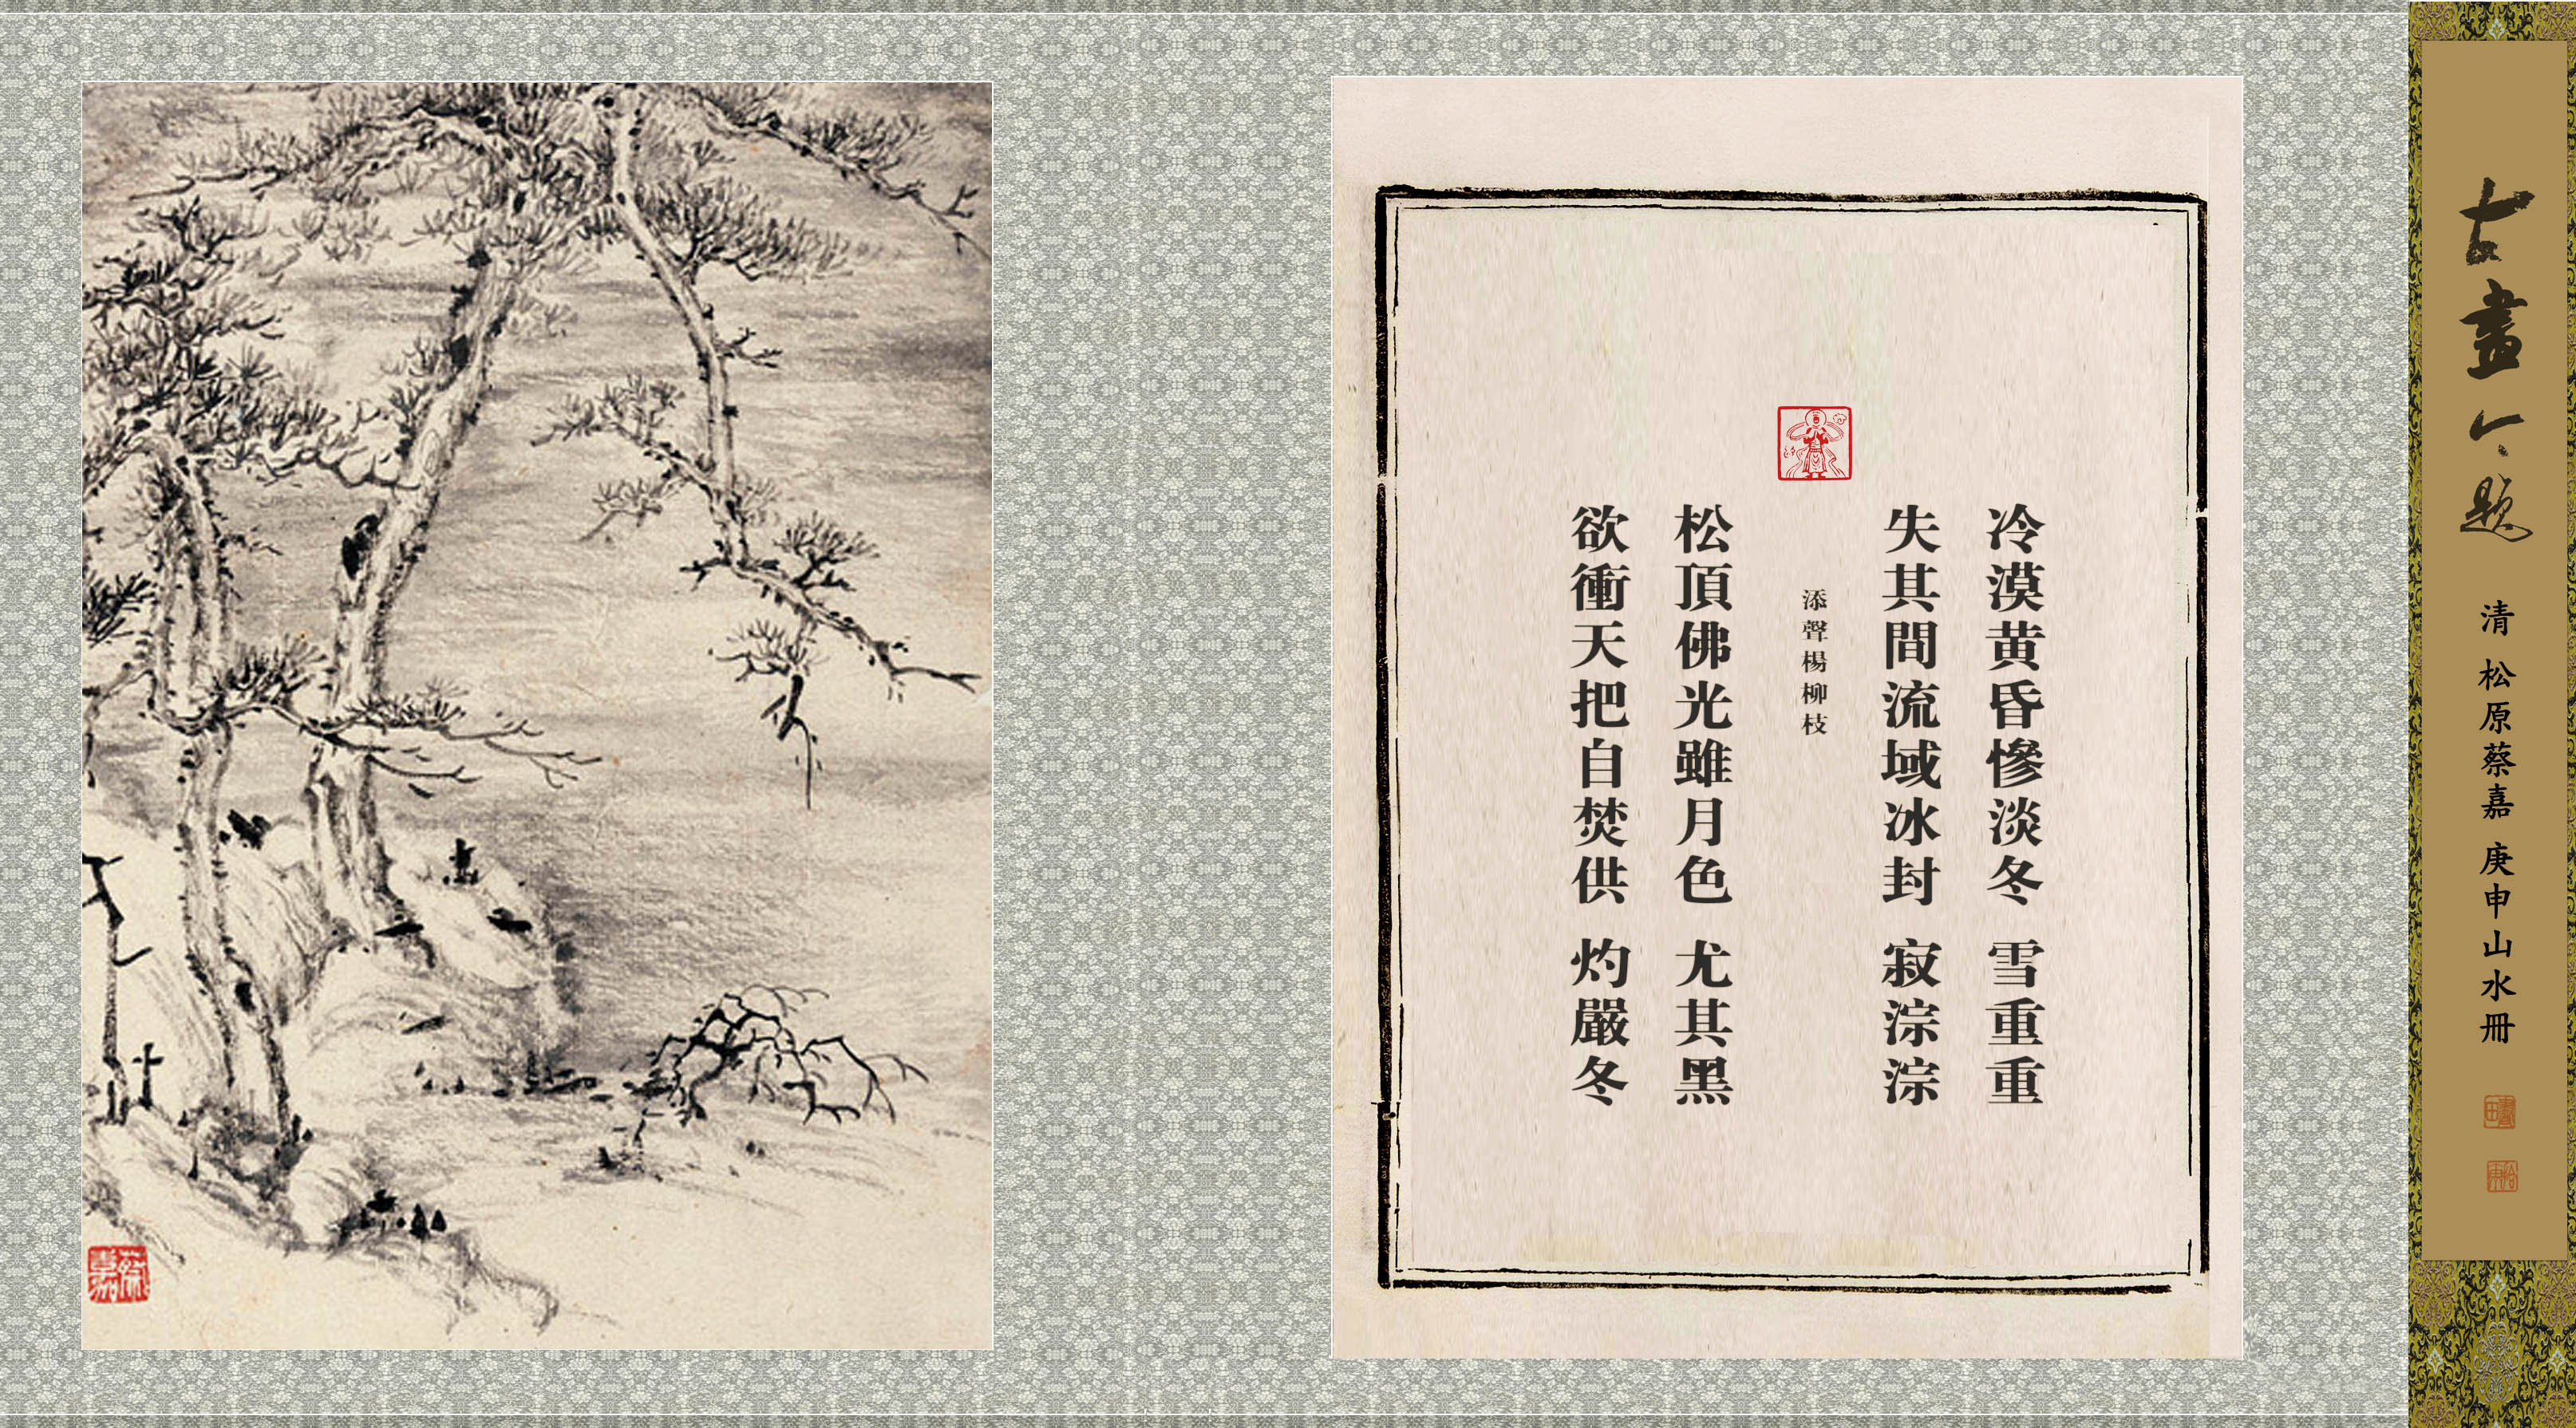 古畫今題
清 松原蔡嘉 庚申山水冊
冷漠黄昏慘淡冬 雪重重
失其間流域冰封 寂淙淙
添聲楊柳枝
松頂佛光雖月色 尤其黑
欲衝天把自焚供 灼嚴冬
蔡嘉